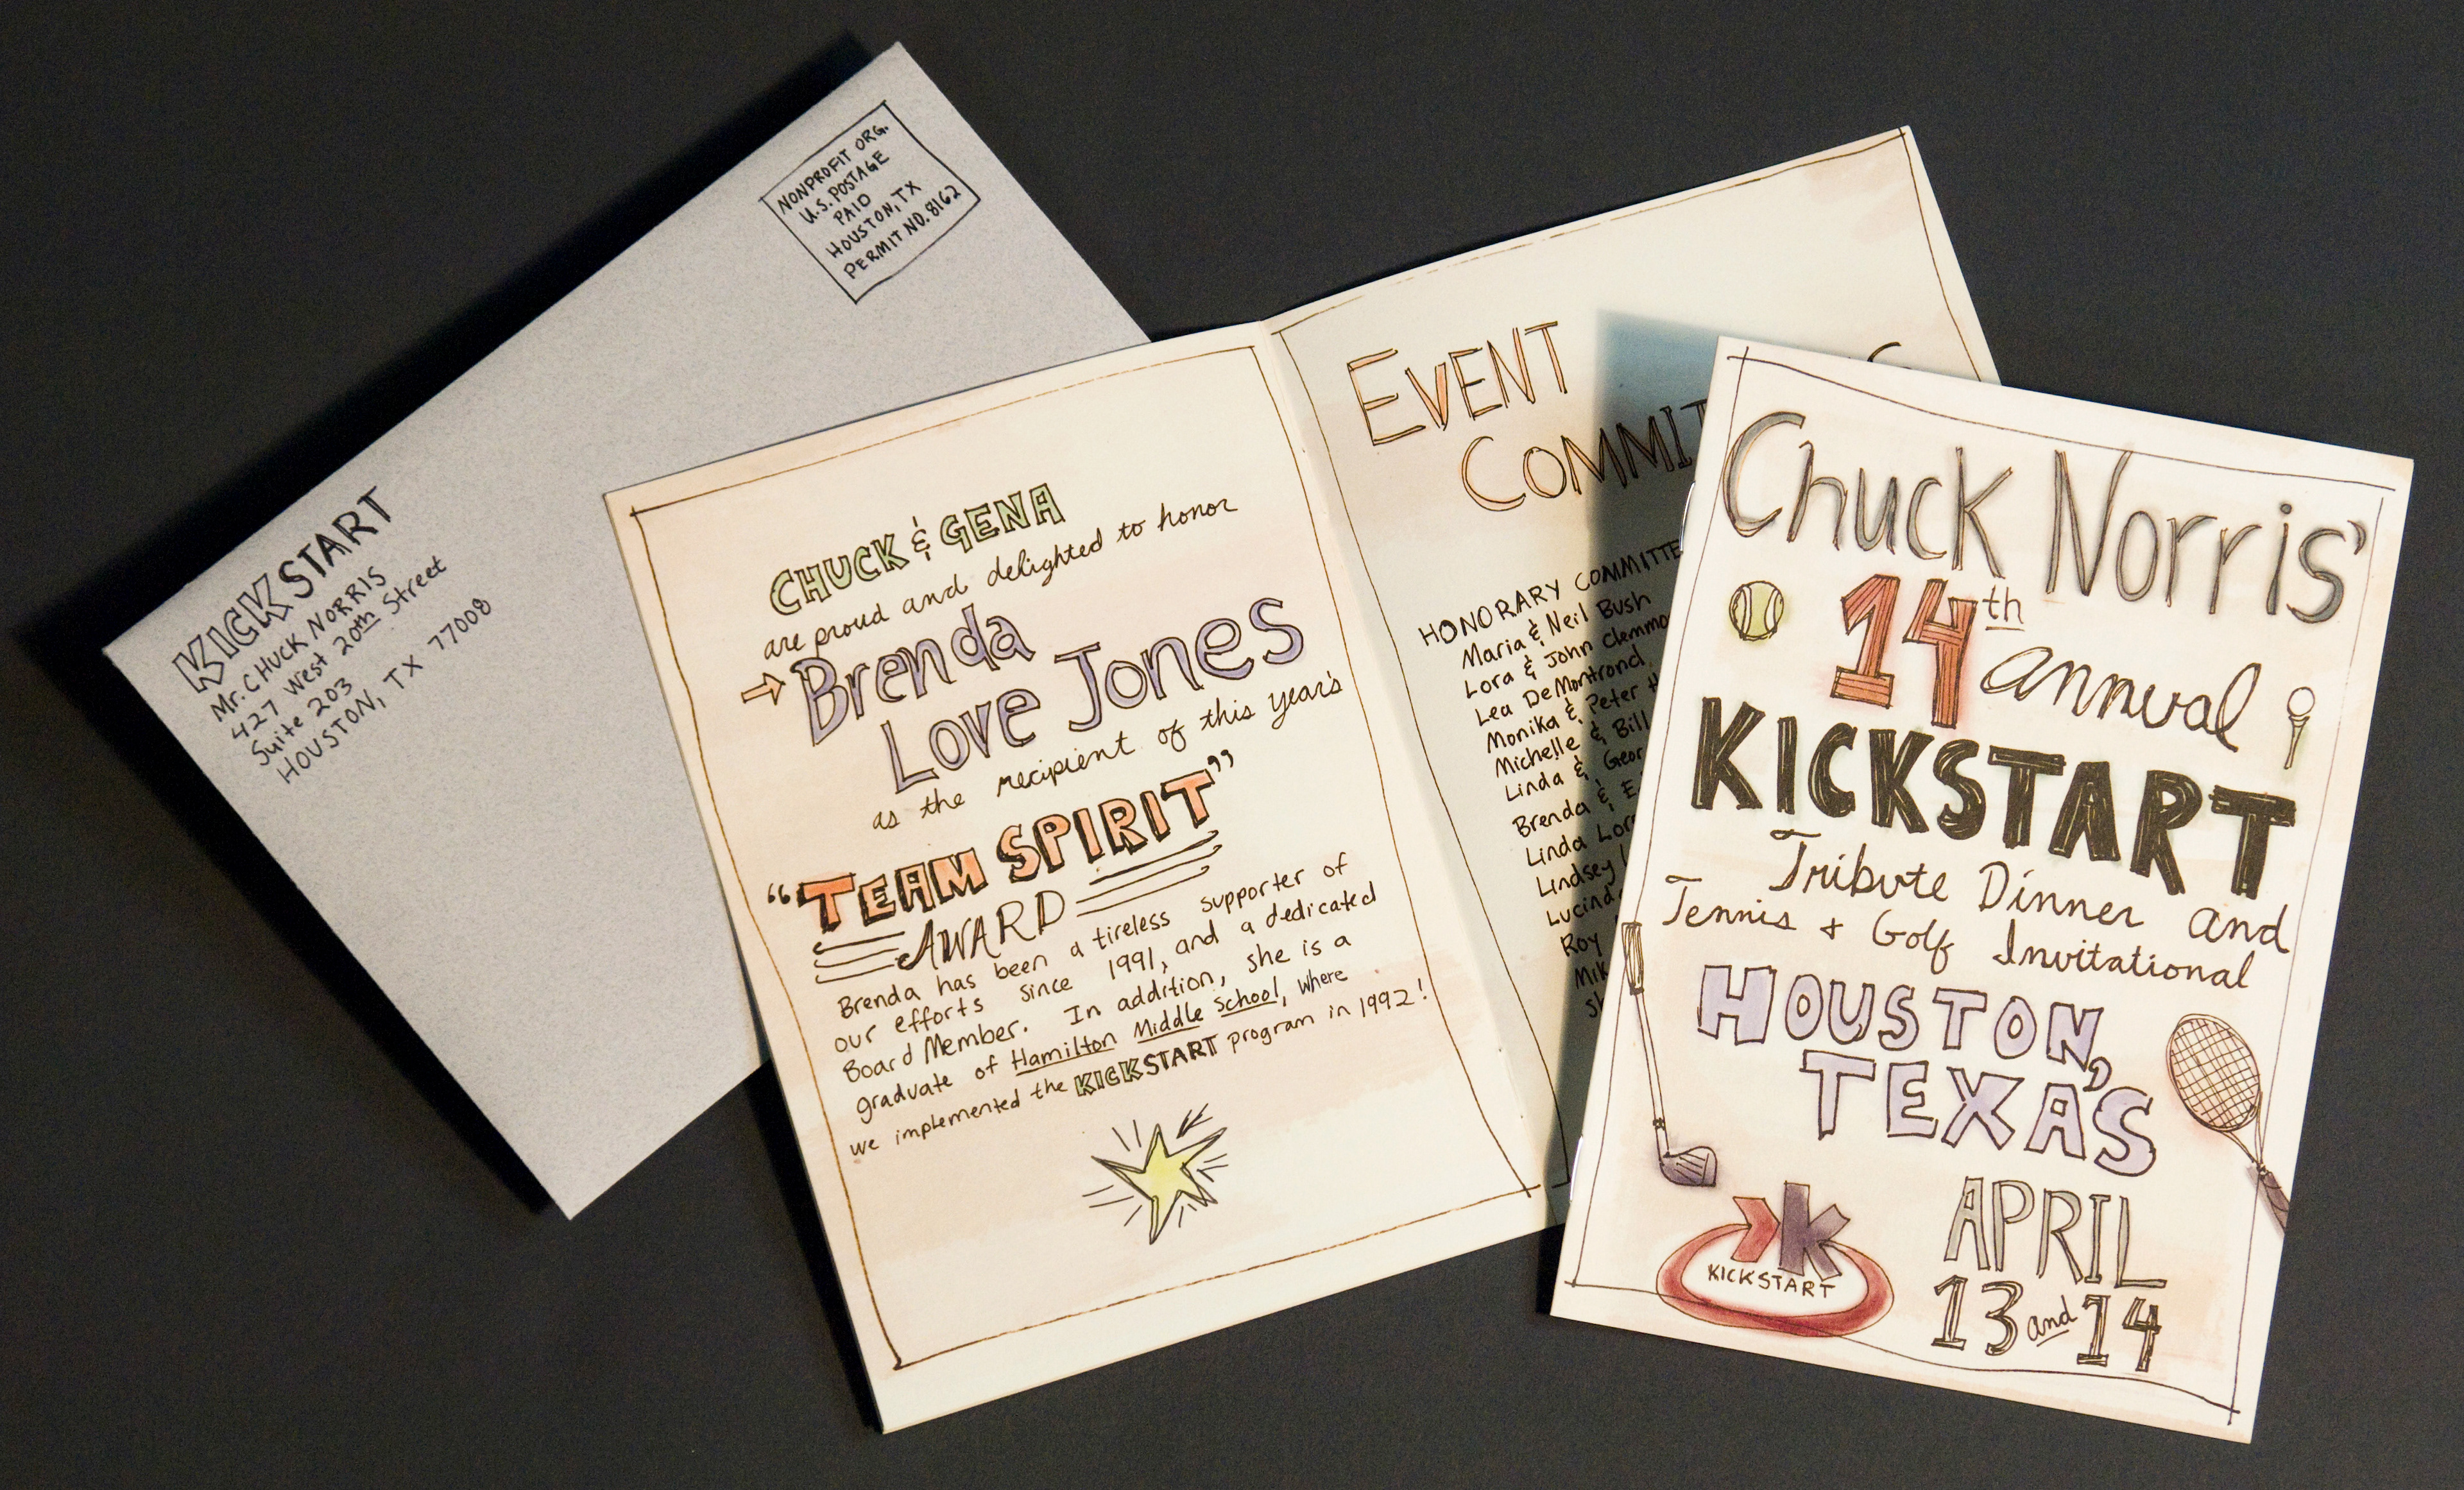 NONPROFIT ORG.
U.S. POSTAGE
PAID
HOUSTON, TX
PERMIT NO. 8162
KICKSTART
Mr. CHUCK NORRIS
427 West 20th Street
Suite 203
HOUSTON, TX 77008
CHUCK & GENA
are proud and delighted to honor
→ Brenda
Love Jones
as the recipient of this year's
"TEAM SPIRIT"
AWARD
Brenda has been a tireless supporter of
our efforts since 1991, and a dedicated
Board Member. In addition, she is a
graduate of Hamilton Middle School, where
we implemented the KICKSTART program in 1992!
EVENT
COMMIT
HONORARY COMMITTE
Maria & Neil Bush
Lora & John Clemmo
Lea DeMontrond
Monika & Peter
Michelle & Bill
Linda & Geor
Brenda &
Linda Lor
Lindsey
Lucind
Roy
Mik
Chuck Norris'
14th annual
KICKSTART
Tribute Dinner and
Tennis + Golf Invitational
HOUSTON,
TEXAS
APRIL
13 and 14
KICKSTART